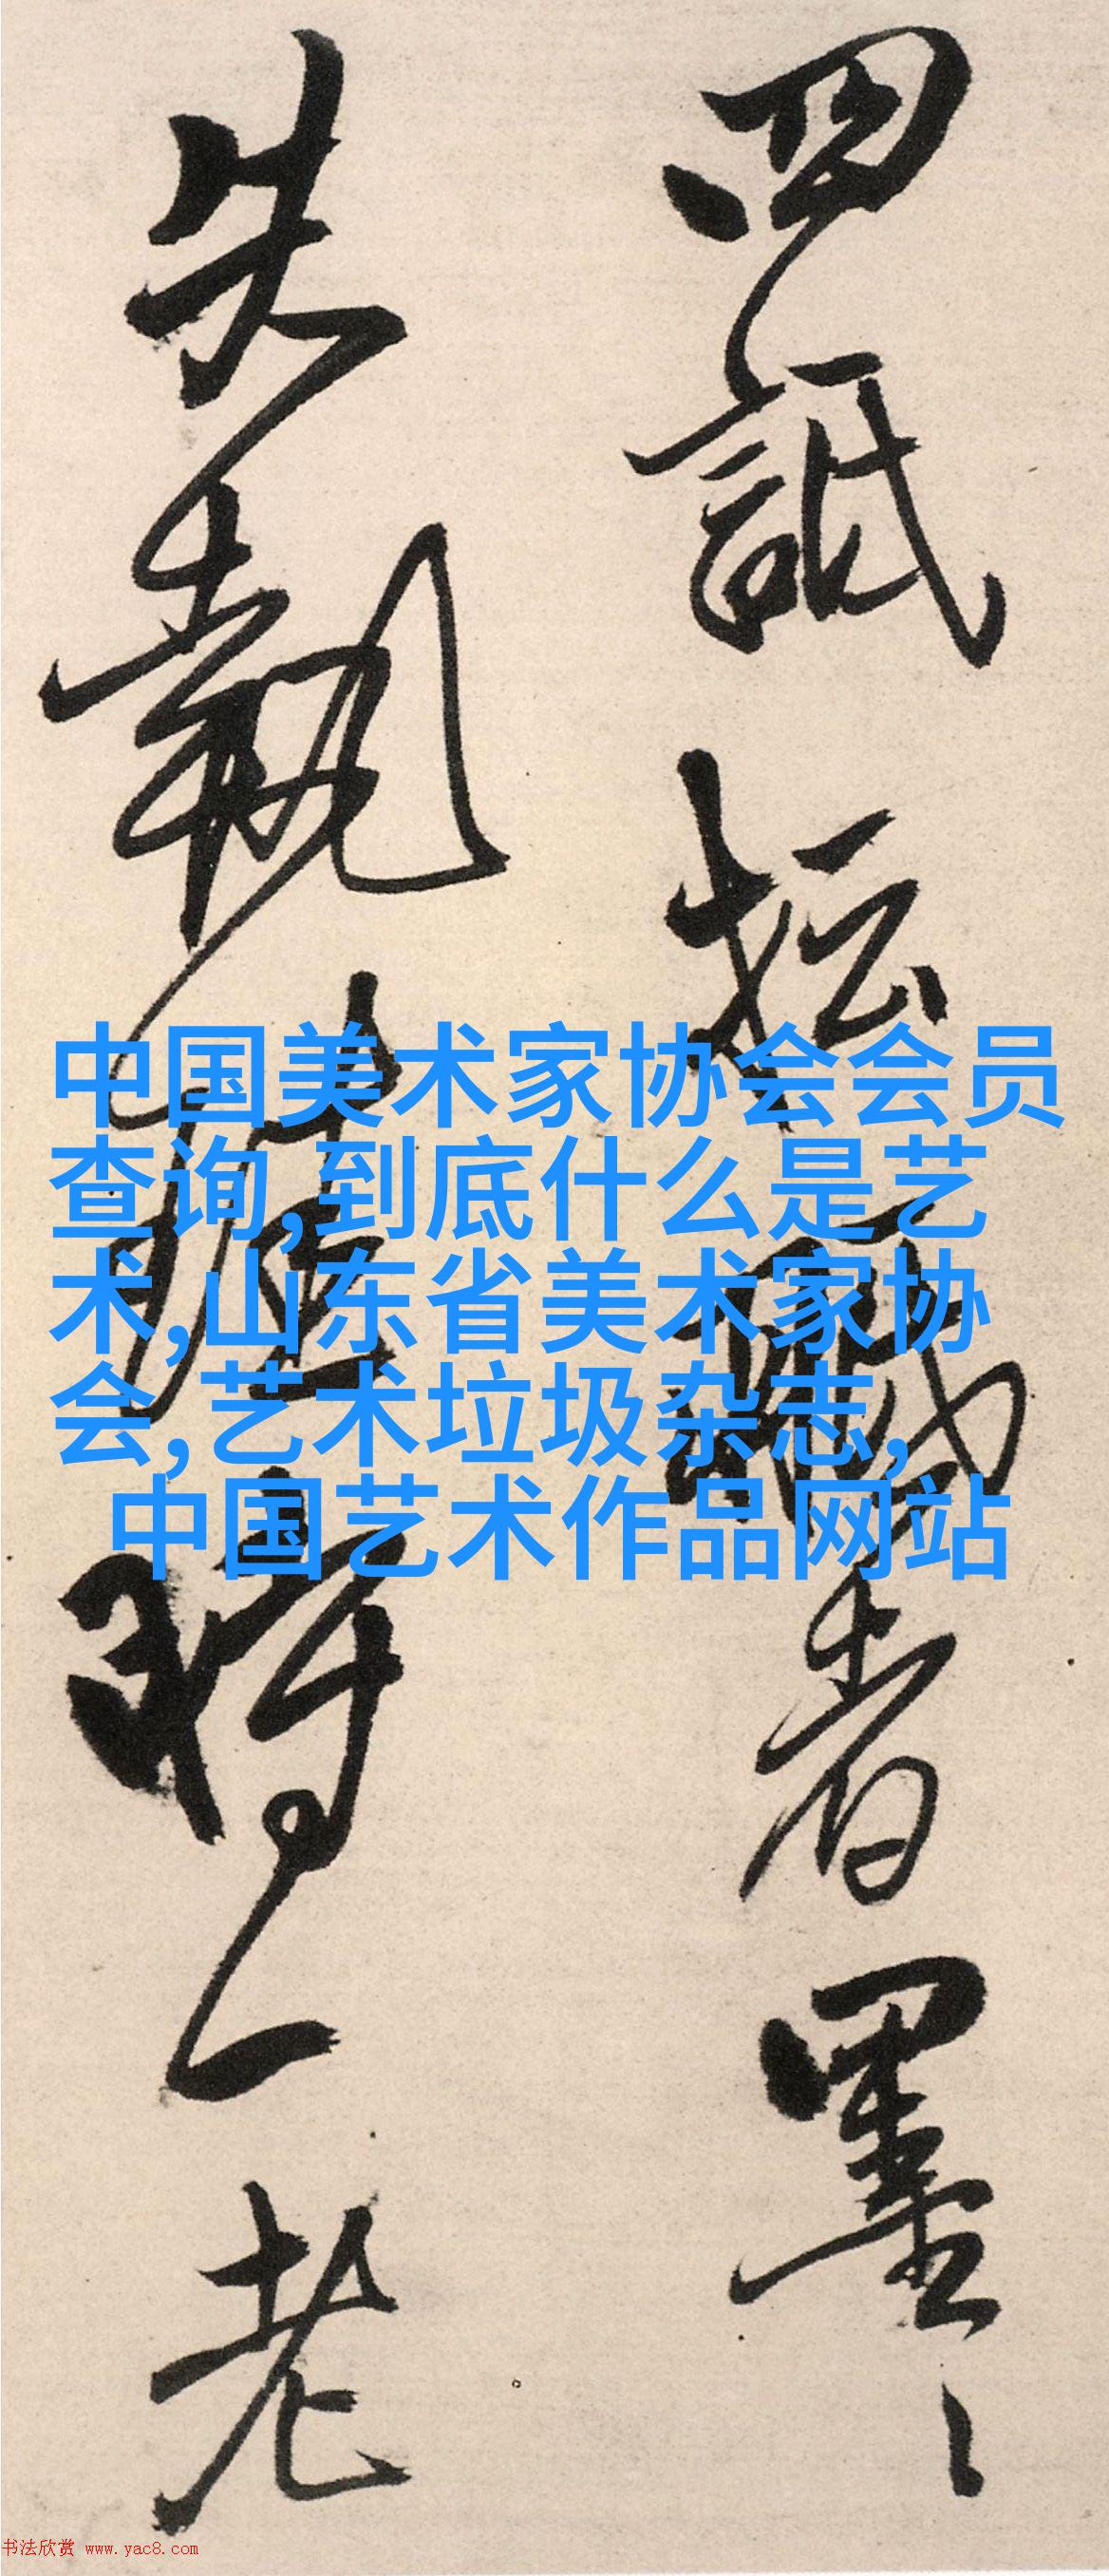 四詆坛
者墨
失執
時一老
中国美术家协会会员
查询,到底什么是艺
术,山东省美术家协
会,艺术垃圾杂志,
中国艺术作品网站
书法欣赏 www.yac8.com